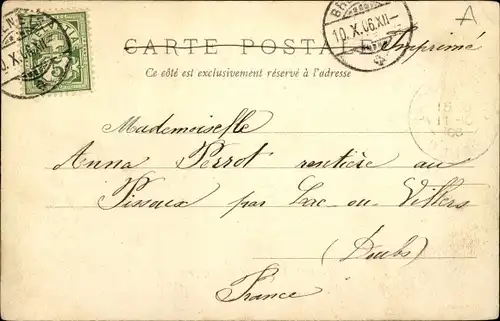 CARTE POSTALE
Imprimé
A
Ce côté est exclusivement réservé à l'adresse
10.X.06.XII
5
Mademoiselle
Anna Perrot rentière au
Pissoux par Lac-ou-Villers
(Doubs)
France